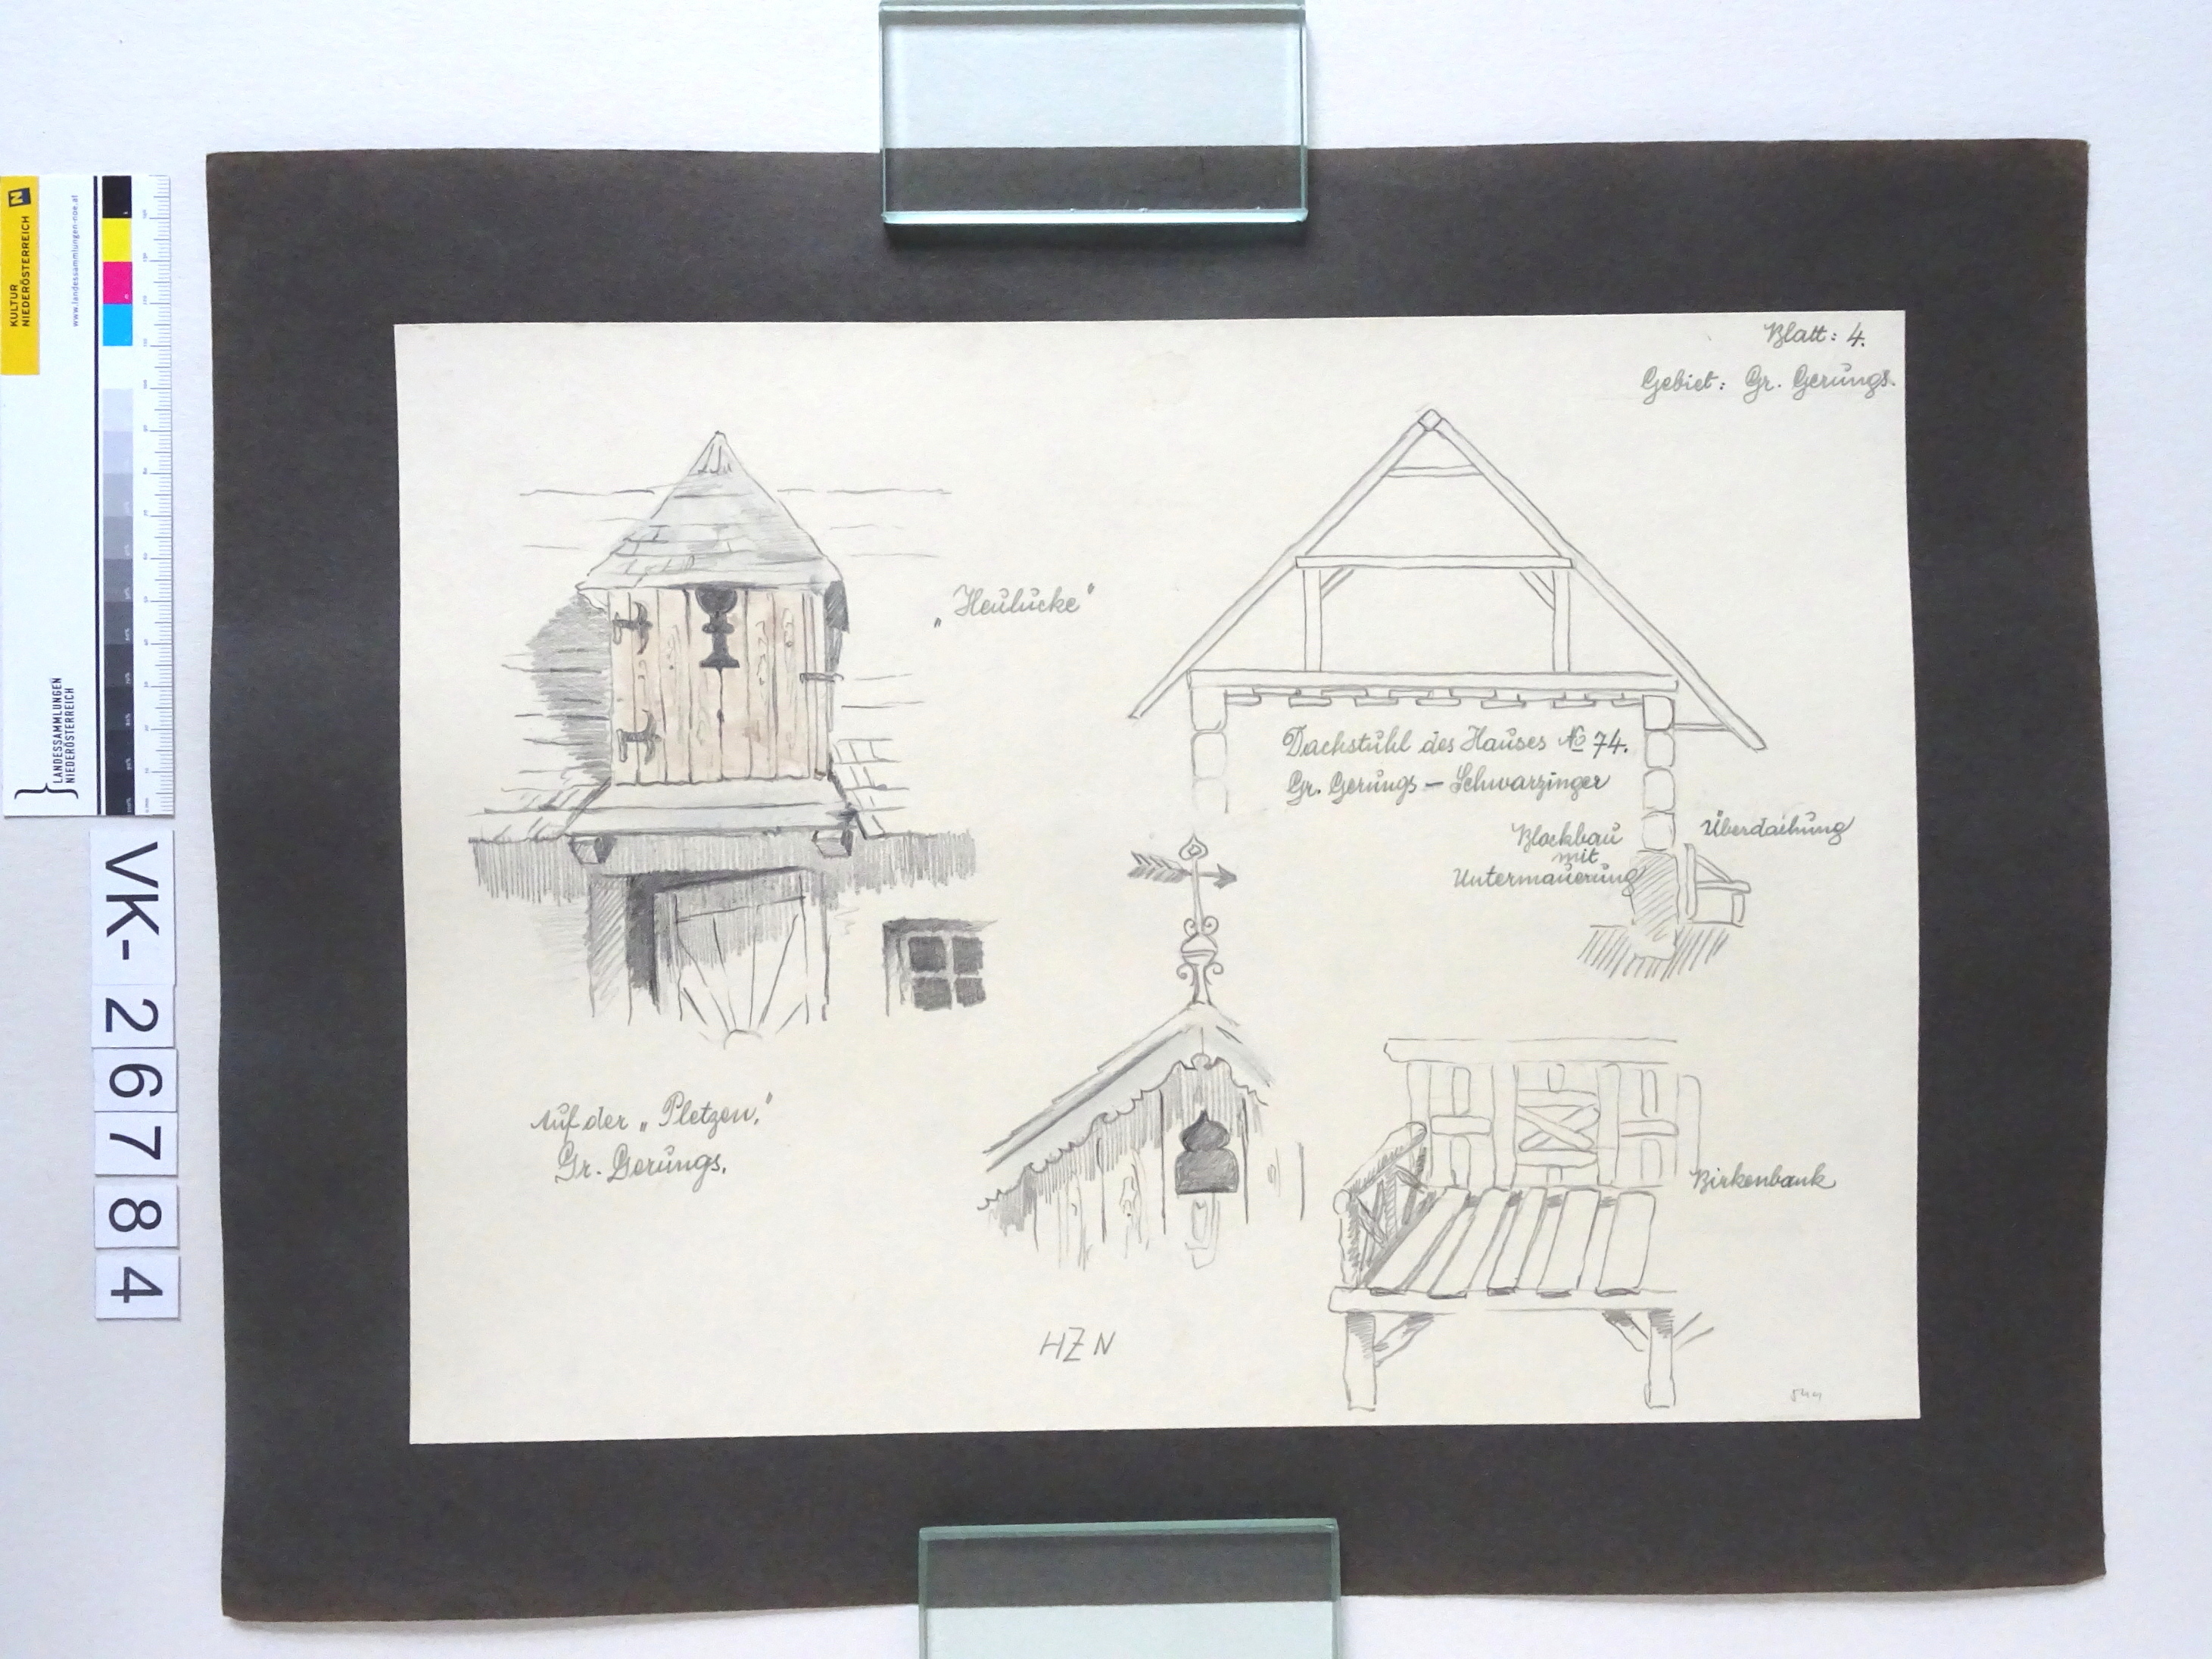 Blatt: 4.
Gebiet: Gr. Gerungs.
„Heulucke"
Dachstuhl des Hauses No 74.
Gr. Gerungs – Schwarzinger
Blockbau
mit
Untermauerung
Überdachung
Auf der „Pletzen."
Gr. Gerungs.
Birkenbank
HZN
KULTUR
NIEDERÖSTERREICH
N
www.landessammlungen-noe.at
LANDESSAMMLUNGEN
NIEDERÖSTERREICH
VK-26784